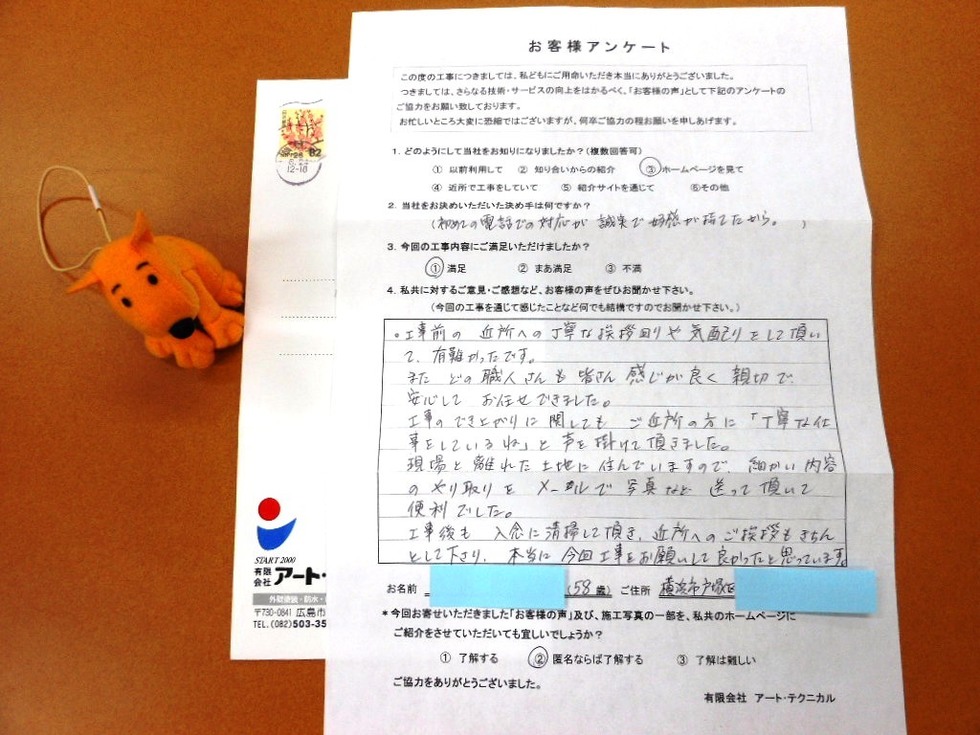 お客様アンケート
この度の工事につきましては、私どもにご用命いただき本当にありがとうございました。
つきましては、さらなる技術・サービスの向上をはかるべく、「お客様の声」として下記のアンケートの
ご協力をお願い致しております。
お忙しいところ大変に恐縮ではございますが、何卒ご協力の程お願いを申しあげます。
1. どのようにして当社をお知りになりましたか？(複数回答可)
① 以前利用して ② 知り合いからの紹介 ③ホームページを見て
④ 近所で工事をしていて ⑤ 紹介サイトを通じて ⑥その他
2. 当社をお決めいただいた決め手は何ですか？
(初めての電話での対応が 誠実で好感が持てたから。 )
3. 今回の工事内容にご満足いただけましたか？
① 満足 ② まあ満足 ③ 不満
4. 私共に対するご意見・ご感想など、お客様の声をぜひお聞かせ下さい。
(今回の工事を通じて感じたことなど何でも結構ですのでお聞かせ下さい。)
。工事前の 近所への丁寧な挨拶回りや気配りをして頂い
て、有難かったです。
また どの職人さんも皆さん 感じが良く 親切で
安心して お任せできました。
工事のでき上がりに関しても ご近所の方に「丁寧な仕
事をしているね」と声を掛けて頂きました。
現場と離れた土地に住んでいますので、細かい内容
のやり取りを メールで 写真など 送って頂いて
便利でした。
工事後も 入念に清掃して頂き、近所へのご挨拶もきちん
として下さり、本当に今回工事をお願いして良かったと思っています。
お名前 (58 歳) ご住所 横浜市戸塚区
*今回お寄せいただきました「お客様の声」及び、施工写真の一部を、私共のホームページに
ご紹介をさせていただいても宜しいでしょうか？
① 了解する ② 匿名ならば了解する ③ 了解は難しい
ご協力をありがとうございました。
有限会社 アート・テクニカル
82
12-18
START 2000
有限会社 アート・
外壁塗装・防水・
〒730-0841 広島市
TEL.(082)503-35